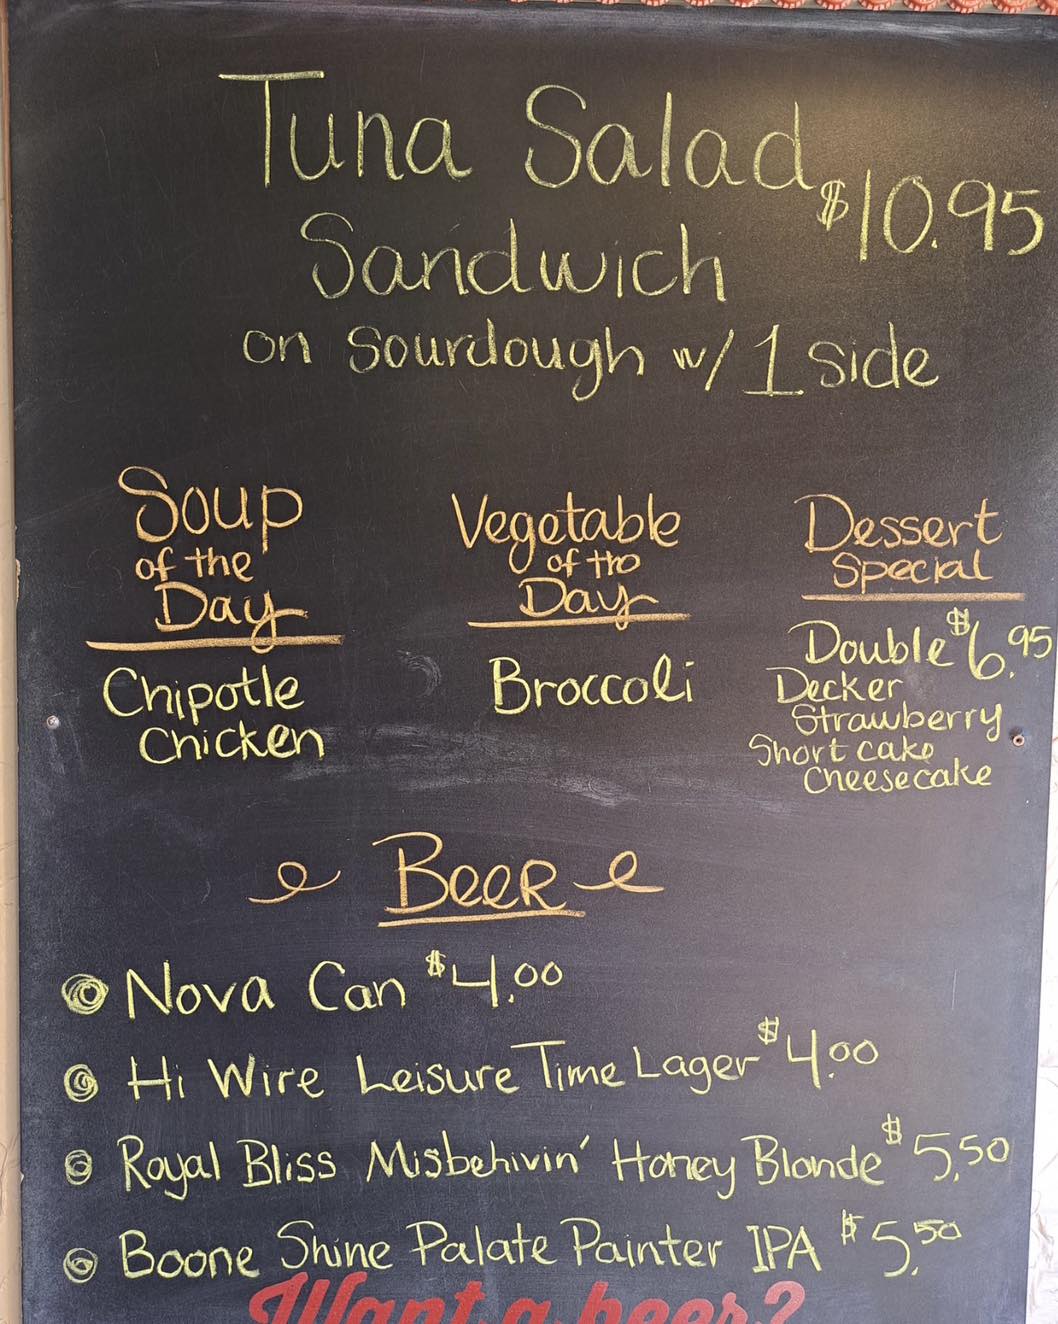 Tuna Salad $10.95
Sandwich
on sourdough w/ 1 side
Soup
of the
Day
Chipotle
Chicken
Vegetable
of the
Day
Broccoli
Dessert
Special
Double $6.95
Decker
Strawberry
Short cake
Cheesecake
Beer
Nova Can $4.00
Hi Wire Leisure Time Lager $4.00
Royal Bliss Misbehivin' Honey Blonde $5.50
Boone Shine Palate Painter IPA $5.50
Want a beer?